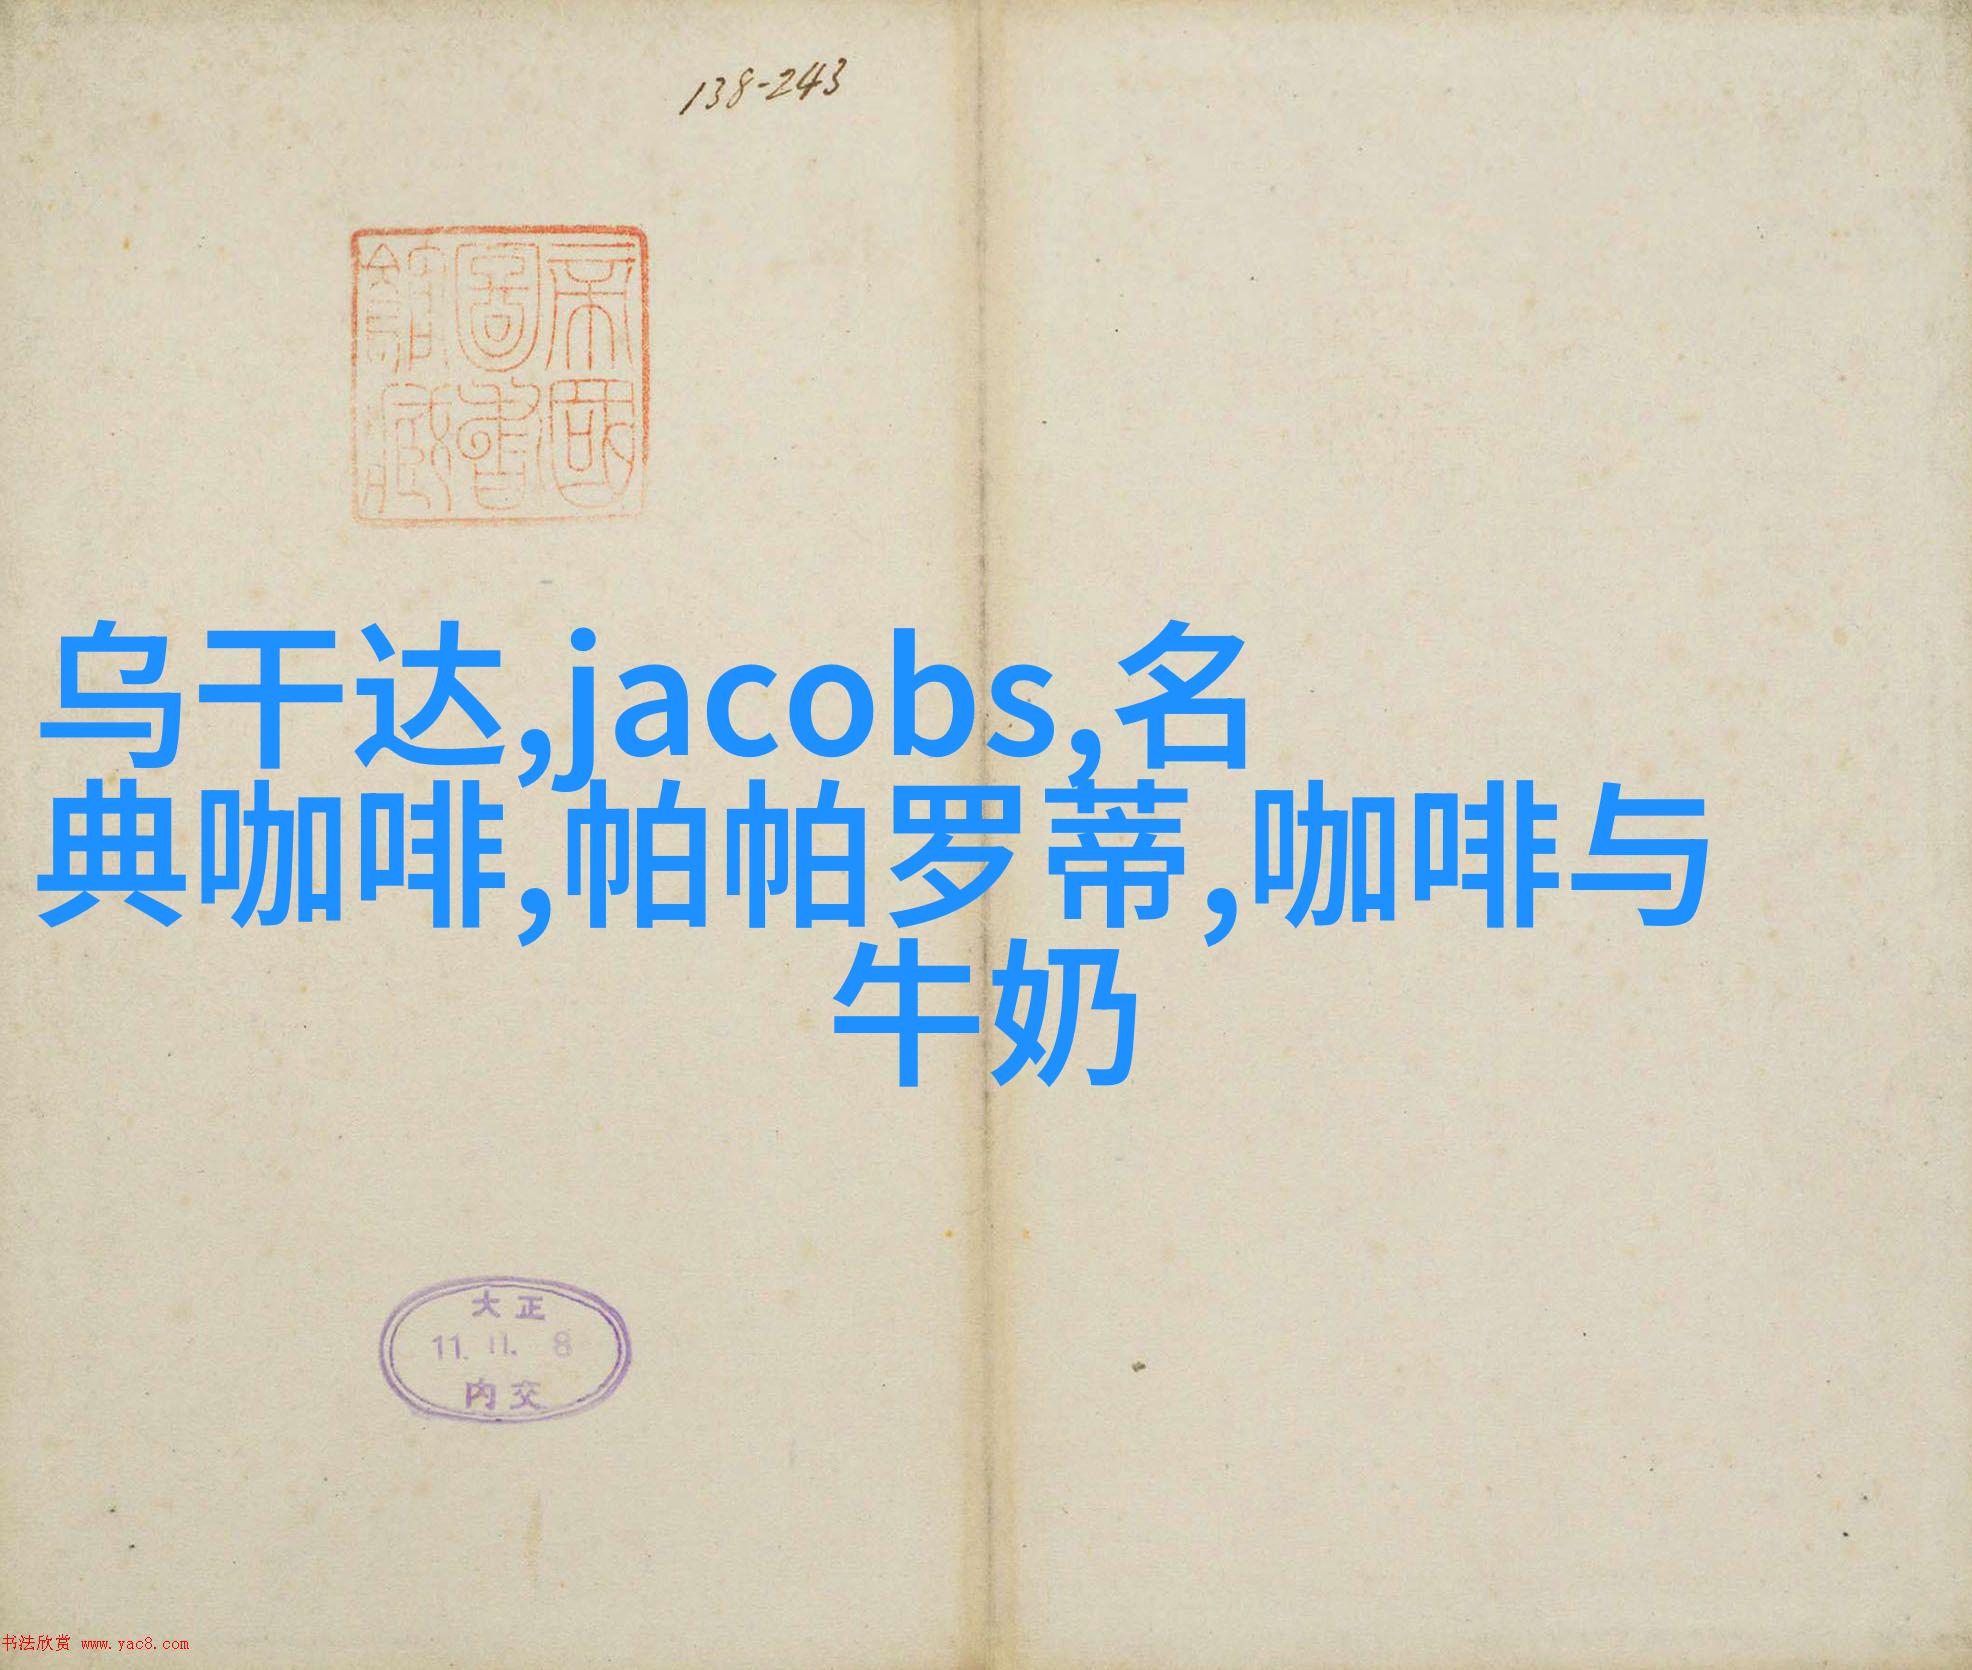 138-243
帝國
圖書
館藏
乌干达,jacobs,名
典咖啡,帕帕罗蒂,咖啡与
牛奶
大正
11. 11. 8
内交
书法欣赏 www.yac8.com